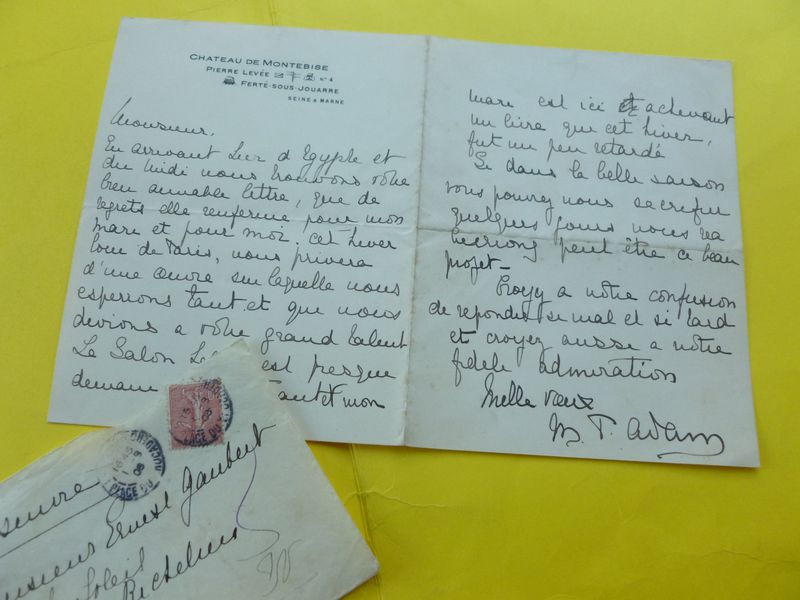 CHATEAU DE MONTEBISE
PIERRE LEVÉE N° 4
FERTÉ-SOUS-JOUARRE
SEINE & MARNE
Monsieur,
En arrivant hier d Egypte et
du Midi nous trouvons votre
bien aimable lettre, que de
regrets elle renferme pour mon
mari et pour moi. cet hiver
loin de Paris, nous privera
d'une œuvre sur laquelle nous
esperions tant et que nous
devions a votre grand talent
Le Salon est presque
demain tant et mon
mari est ici et achevant
un livre que cet hiver,
fut un peu retardé
Si dans la belle saison
vous pouvez nous sacrifier
quelques jours nous rea
liserions peut être ce beau
projet_
Croyez a notre confusion
de repondre si mal et si tard
et croyez aussi a notre
fidèle admiration
Mille vœux
M. P. Adam
Monsieur Ernest Gaubert
Soleil
Richelieu
PLACE DU
PLACE DU